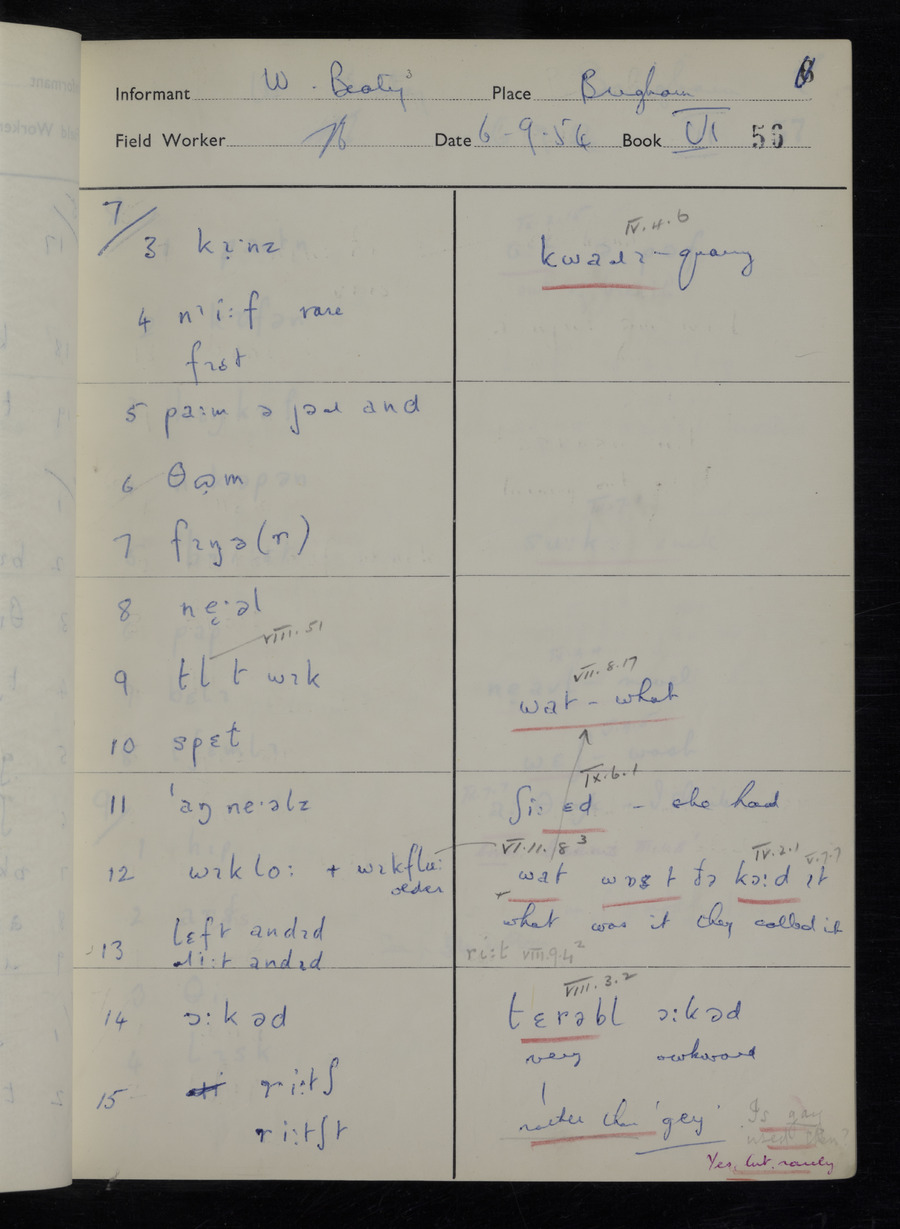 Informant W. Beaty³ Place Brigham 6
Field Worker Date 6-9-54 Book VI 56
7/
3 kɪ̣:nz
4 nɪi:f rare
fɪst
5 pa:m ə jəɹ and
6 θʊ̣m
7 fɪŋə(r)
8 ne̞·əl
VIII.5.1
9 tl t wɪk
10 spɛt
11 'aŋ ne·əlz
12 wɪk lo: + wɪkflu:
older
13 lɛft andɪd
andɪd
14 ɔ:kəd
15 ri:tʃ
ri:tʃt
IV.4.6
– quarry
VII.8.17
wat – what
IX.6.1
ʃi: ɛd – she had
VI.11.8³ IV.2.1 V.7.7
wat t ðə kɔ:d ɪt
+
what was it they called it
ri:t VIII.9.4²
VIII.3.2
tɛrəbl ɔ:kəd
very awkward
rather than 'gey' Is gay
used then?
Yes, but rarely